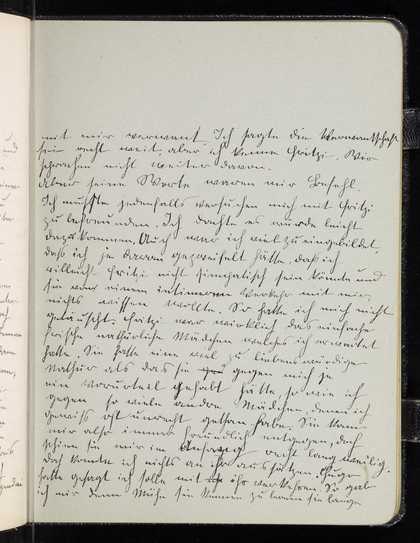 mit mir verwant. Ich sagte die Verwantschaft
sei recht weit, aber ich kenne Fritzi. Wir
sprachen nicht weiter davon.
Aber seine Worte waren mir Befehl.
Ich mußte jedenfalls versuchen mich mit Fritzi
zu befreunden. Ich dachte es würde leicht
dazu kommen. Auch war ich viel zu eingebildet,
daß ich je daran gezweifelt hätte, daß ich
vielleicht Fritzi nicht simpatisch sein könnte und
sie von einem intimeren Verkehr mit mir
nichts wissen wollte. So hatte ich mich nicht
getäuscht. Fritzi war wirklich das einfache
frische natürliche Mädchen welches ich erwartet
hatte. Sie hatte eine viel zu liebenswürdige
Nathur als daß sie gegen mich je
ein Vorurteil gehabt hätte, so wie ich
gegen so viele andre Mädchen, denen ich
gewiss oft unrecht gethan habe. Sie kam
mir also immer freundlich entgegen, doch
schien sie mir im Anfang recht langweilig.
doch konnte ich nichts an ihr aussetzen. Hugo
hatte gesagt ich solle mit ihr verkehren. So gab
ich mir denn Mühe sie kennen zu lernen sie lange